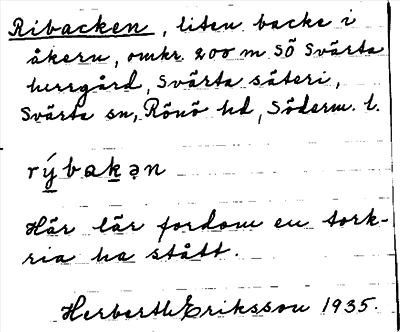 Ribacken, liten backe i
åkern, omkr. 200 m SÖ Svärta
herrgård, Svärta säteri,
Svärta sn, Rönö hd, Söderm. l.
rýbakən
Här lär fordom en tork-
ria ha stått.
Herbert Eriksson 1935.